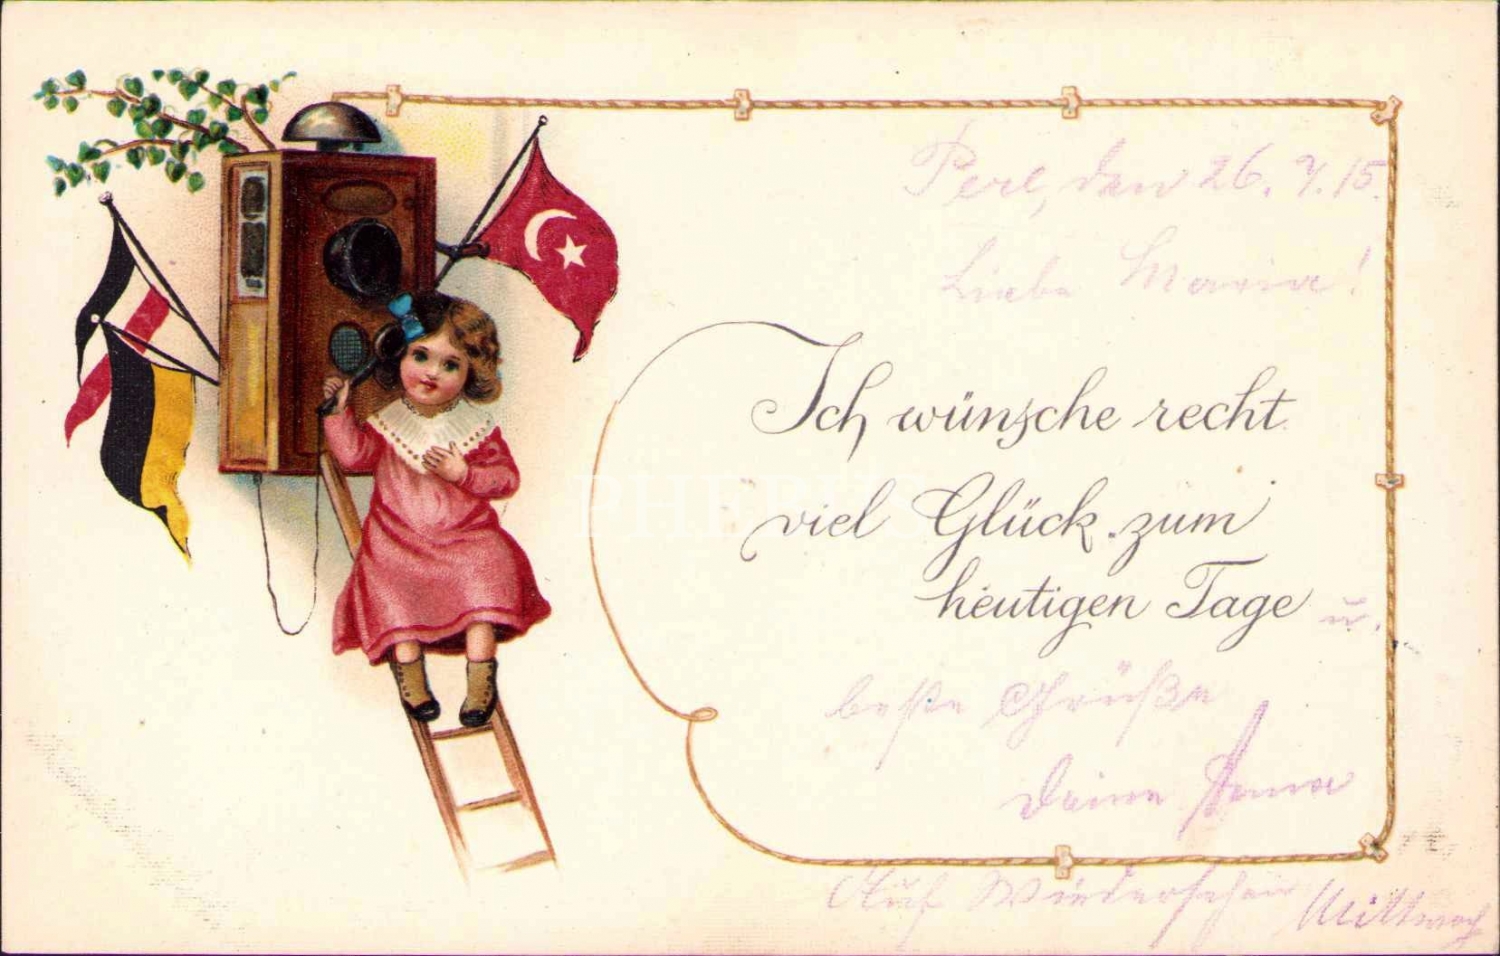 Perl, den 26.7.15.
Liebe Maria!
Ich wünsche recht
viel Glück zum
heutigen Tage u.
beste Grüße
Deine Anna
Auf Wiedersehen Mittwoch